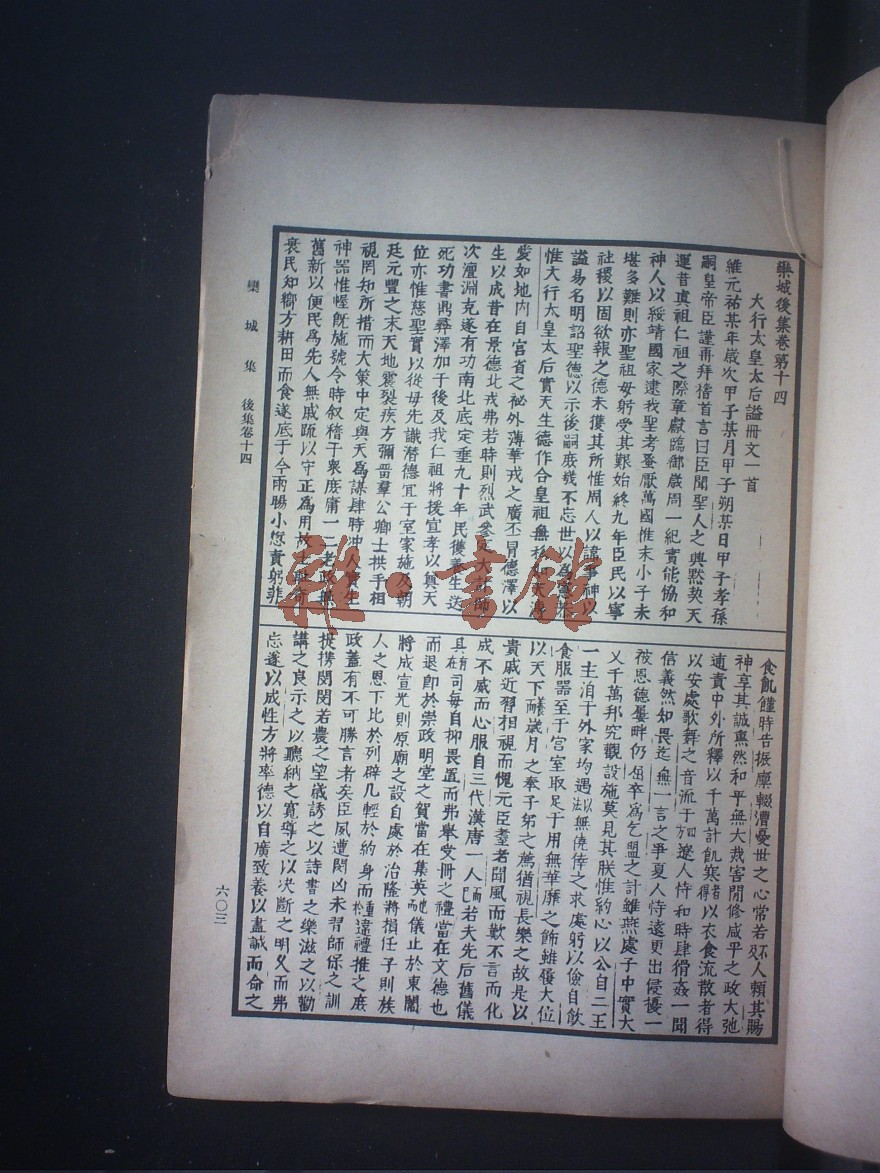 欒城後集卷第十四
大行太皇太后謚冊文一首
維元祐某年歲次甲子某月甲子朔某日甲子孝孫
嗣皇帝臣謹再拜稽首言曰臣聞聖人之興默契天
運昔真祖仁祖之際章獻臨御歲周一紀實能協和
神人以綏靖國家逮我聖考蚤厭萬國惟末小子未
堪多難則亦聖祖母躬受其艱始終九年臣民以寧
社稷以固欲報之德未獲其所惟周人以諱事神以
謚易名明詔聖德以示後嗣庶幾不忘世以為
惟大行太皇太后實天生德作合皇祖無
愛如地內自宮省之祕外薄華戎之廣丕冒德澤以
生以成昔在景德北戎弗若時則烈武參
次澶淵克遂有功南北底定垂九十年民獲養生送
死功書鼎彝澤加于後及我仁祖將援宣孝以貳天
位亦惟慈聖實以從母先識潛德冝于室家施及朝
廷元豐之末天地震裂疾方彌留羣公卿士拱手相
視罔知所措而大策中定與天為謀肆時沖人實生
神器惟惺既施號令時敘稽于衆庶庸一二老政無
舊新以便民為先人無戚疏以守正為用故
衷民知鄉方耕田而食遂底于今雨暘小愆責躬非
食飢饉時告振廩輟漕憂世之心常若不及人賴其賜
神享其誠熏然和平無大菑害間修咸平之政大弛
逋責中外所釋以千萬計飢寒者得以衣食流散者得
以安處歌舞之音流于四遼人恃和時肆猾姦一聞
信義然知畏迄無一言之爭夏人恃遠更出侵擾一
荷恩德屢畔仍屈卒為乞盟之計雖燕處子中實大
乂千萬邦究觀設施莫見其朕惟約心以公自二王
一主洎于外家均遇以法無僥倖之求處躬以儉自飲
食服器至于宫室取足于用無華靡之飾雖履大位
以天下養歲月之奉子弟之薦猶視長樂之故是以
貴戚近習相視而愧元臣耆老聞風而歎不言而化
成不威而心服自三代漢唐一人而已若夫先后舊儀
具在有司每自抑畏置而弗舉受冊之禮當在文德也
而退卽於崇政明堂之賀當在集英也儀止於東閤
將成宣光則原廟之設自處於治隆將損任子則族
人之恩下比於列辟几輕於約身而重於違禮推之庶
政蓋有不可勝言者矣臣夙遭閔凶未習師保之訓
提携閔閔若農之望歲誘之以詩書之樂滋之以勸
講之良示之以聽納之寬導之以决斷之明久而弗
忘遂以成性方將率德以自廣致養以盡誠而命之
欒城集 後集卷十四
六〇三
雜·書館